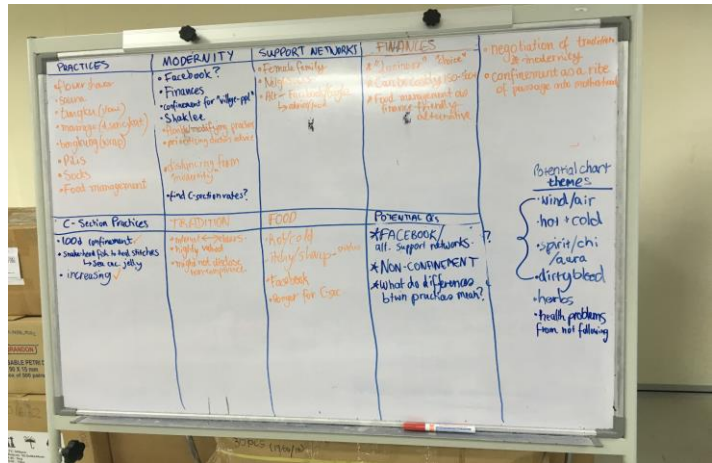 PRACTICES
• flower shower
• sauna
• tungku (stone)
• Pilis
• Socks
• Food management
MODERNITY
• Facebook?
• Finances
• confinement for "village-ppl"
• Shaklee
• family modifying practices
• prioritizing doctors advice
• distancing from
• find C-section rates?
SUPPORT NETWORKS
• Female family
• Neighbours
FINANCES
• "Choice"
• Can be costly
• Food management as
finance-friendly
alternative
• negotiation of tradition
& modernity
• confinement as a rite
of passage into motherhood
C-Section Practices
• 100d confinement
• snakehead fish to heal stitches
↳ sea cuc. jelly
• increasing
TRADITION
• highly valued
• might not disclose
non-compliance
FOOD
• hot/cold
• itchy/sharp
• Facebook
• longer for C-sec
POTENTIAL Qs
* FACEBOOK/
alt. support networks. ?
* NON-CONFINEMENT
* What do differences
btwn practices mean?
Potential chart
themes
• wind/air
• hot + cold
• spirit/chi
/aura
• dirty blood
• herbs
• health problems
from not following